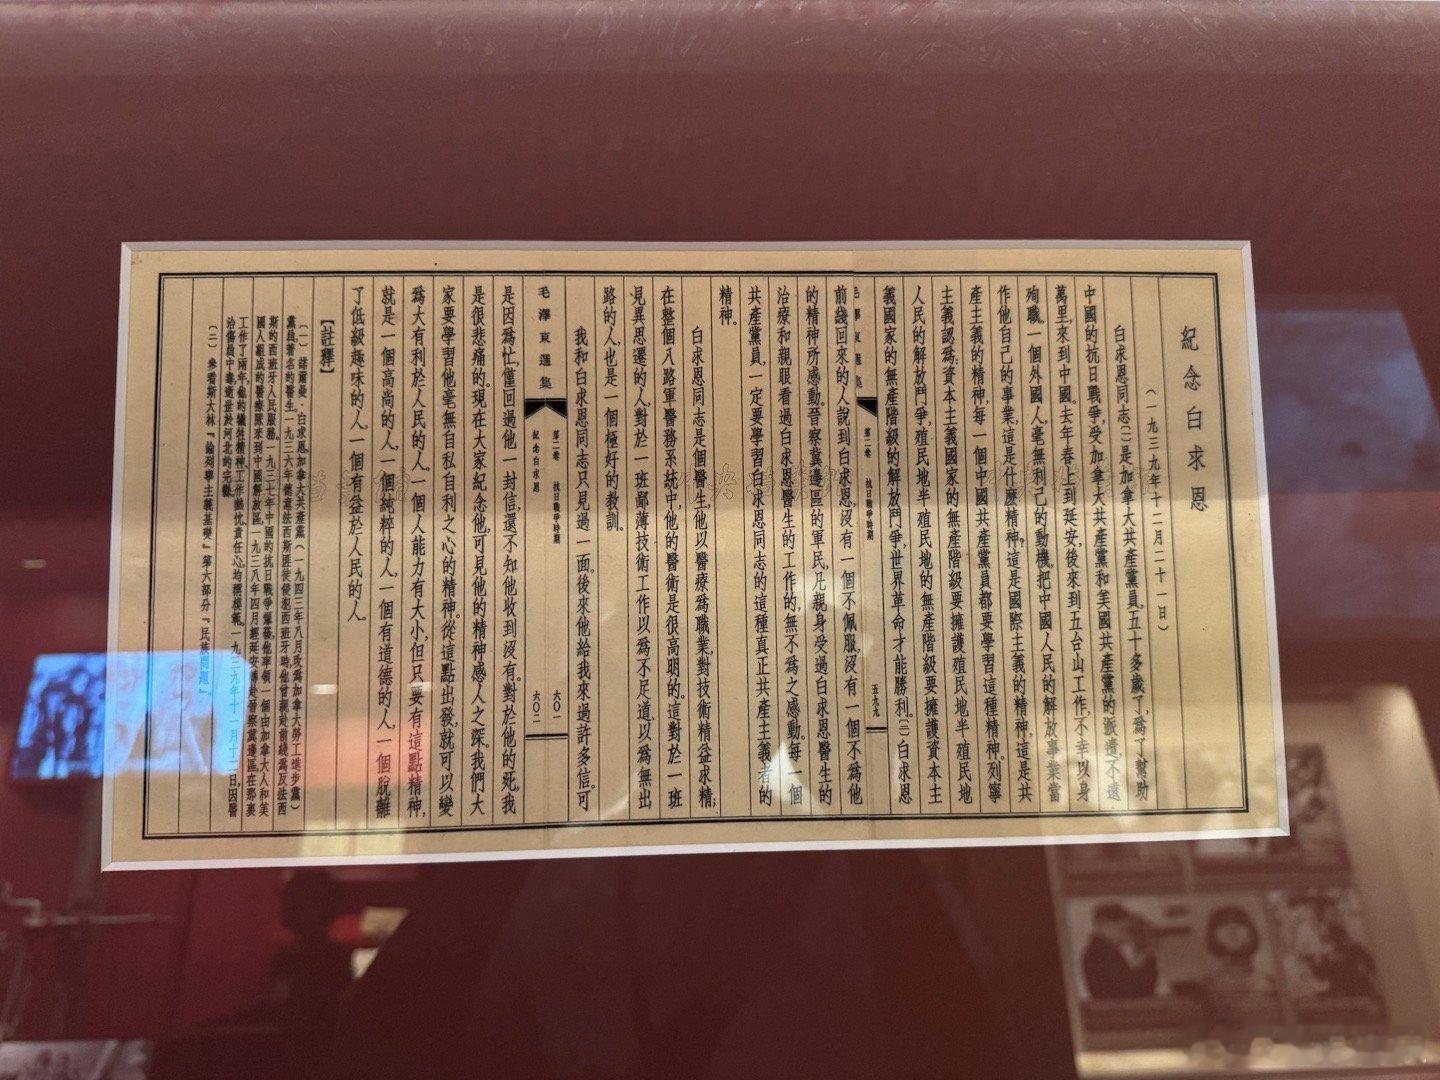 紀念白求恩
（一九三九年十二月二十一日）
白求恩同志㈠是加拿大共產黨員，五十多歲了，爲了幫助
中國的抗日戰爭，受加拿大共產黨和美國共產黨的派遣，不遠
萬里，來到中國。去年春上到延安，後來到五台山工作，不幸以身
殉職。一個外國人，毫無利己的動機，把中國人民的解放事業當
作他自己的事業，這是什麼精神？這是國際主義的精神，這是共
產主義的精神，每一個中國共產黨員都要學習這種精神。列寧
主義認爲：資本主義國家的無產階級要擁護殖民地半殖民地
人民的解放鬥爭，殖民地半殖民地的無產階級要擁護資本主
義國家的無產階級的解放鬥爭，世界革命才能勝利。㈡白求恩
毛澤東選集 第二卷 抗日戰爭時期 五九九
前綫回來的人說到白求恩，沒有一個不佩服，沒有一個不爲他
的精神所感動。晉察冀邊區的軍民，凡親身受過白求恩醫生的
治療和親眼看過白求恩醫生的工作的，無不爲之感動。每一個
共產黨員，一定要學習白求恩同志的這種真正共產主義者的
精神。
白求恩同志是個醫生，他以醫療爲職業，對技術精益求精；
在整個八路軍醫務系統中，他的醫術是很高明的。這對於一班
見異思遷的人，對於一班鄙薄技術工作以爲不足道、以爲無出
路的人，也是一個極好的教訓。
我和白求恩同志只見過一面。後來他給我來過許多信。可
毛澤東選集 第二卷 抗日戰爭時期 六〇一
紀念白求恩 六〇二
是因爲忙，僅回過他一封信，還不知他收到沒有。對於他的死，我
是很悲痛的。現在大家紀念他，可見他的精神感人之深。我們大
家要學習他毫無自私自利之心的精神。從這點出發，就可以變
爲大有利於人民的人。一個人能力有大小，但只要有這點精神，
就是一個高尚的人，一個純粹的人，一個有道德的人，一個脫離
了低級趣味的人，一個有益於人民的人。
【註釋】
（一）諾爾曼·白求恩，加拿大共產黨（一九四三年八月改爲加拿大勞工進步黨）
黨員，著名的醫生。一九三六年德意法西斯匪徒侵犯西班牙時，他曾親赴前綫爲反法西
斯的西班牙人民服務。一九三七年中國的抗日戰爭爆發，他率領一個由加拿大人和美
國人組成的醫療隊來到中國解放區，一九三八年四月經延安轉赴晉察冀邊區，在那裏
工作了兩年。他的犧牲精神、工作熱忱、責任心，均稱模範。一九三九年十一月十二日，因醫
治傷員中毒，逝世於河北的完縣。
（二）參看斯大林『論列寧主義基礎』第六部分『民族問題』。